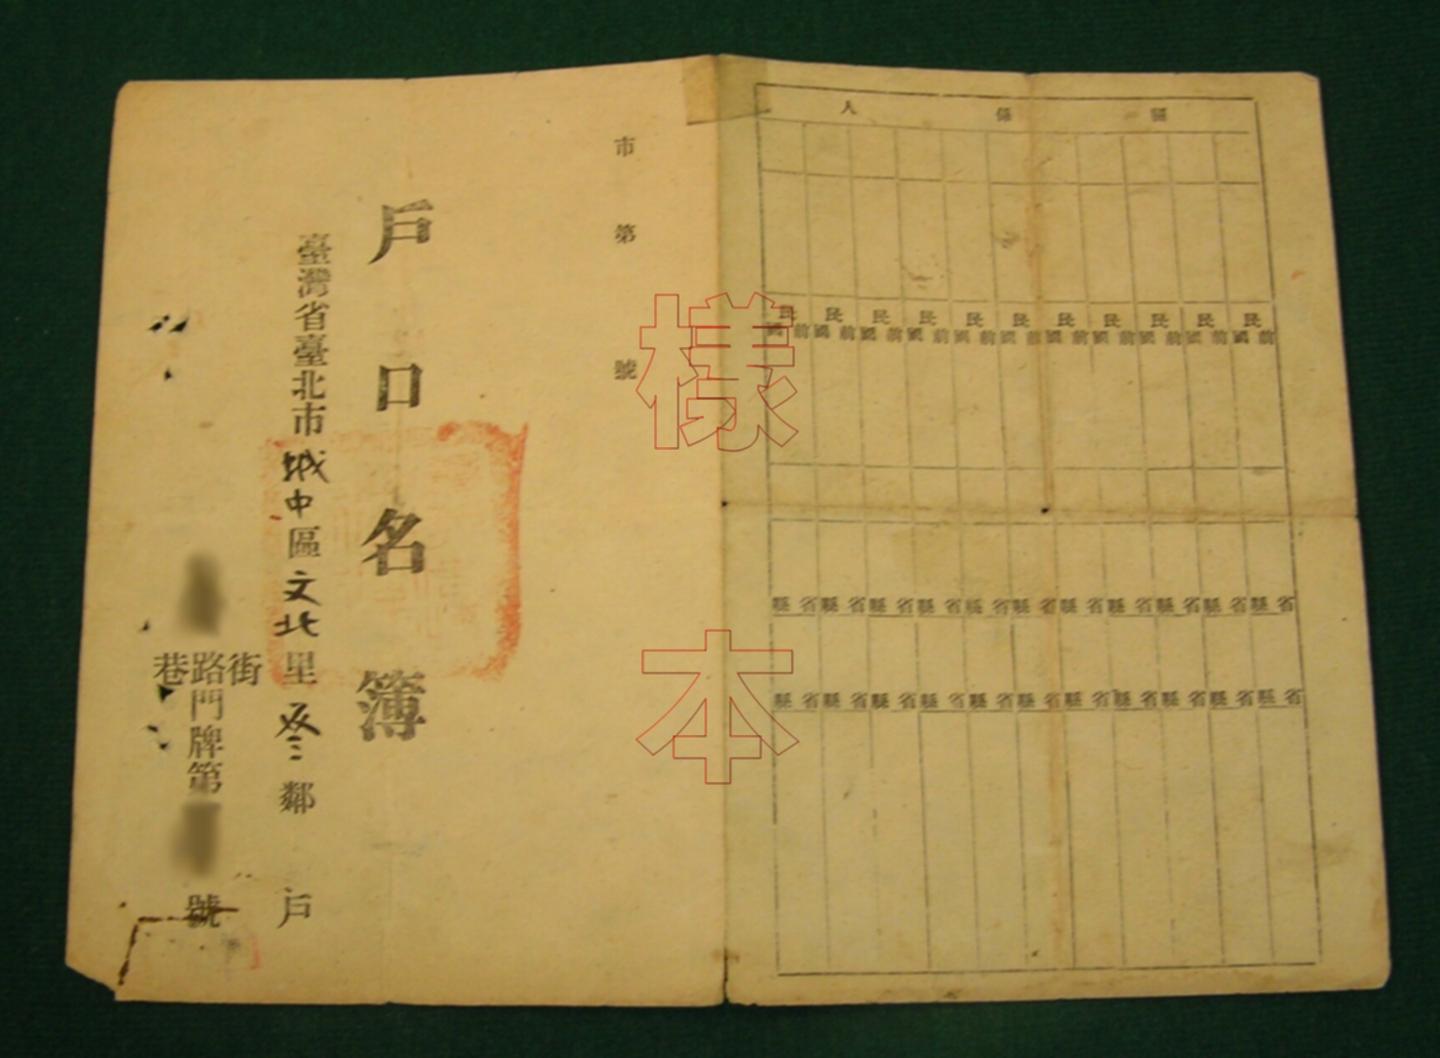 關係人
民國前 民國前 民國前 民國前 民國前 民國前 民國前 民國前 民國前 民國前 民國前
省縣 省縣 省縣 省縣 省縣 省縣 省縣 省縣 省縣 省縣 省縣
省縣 省縣 省縣 省縣 省縣 省縣 省縣 省縣 省縣 省縣 省縣
樣本
市第號
戶口名簿
臺灣省臺北市城中區文北里鄰戶
街路巷門牌第號